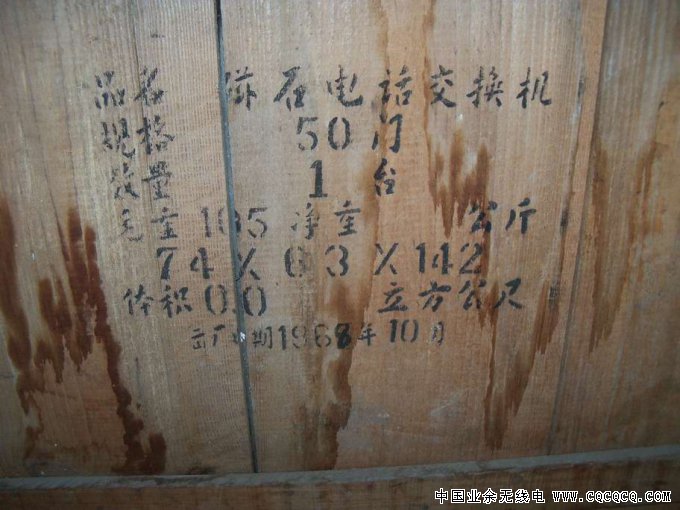 品名 磁石电话交换机
规格 50门
数量 1 台
毛重 105 净重 公斤
74X63X142
体积0.0 立方公尺
出厂日期1968年10月
中国业余无线电 www.CQCQCQ.com